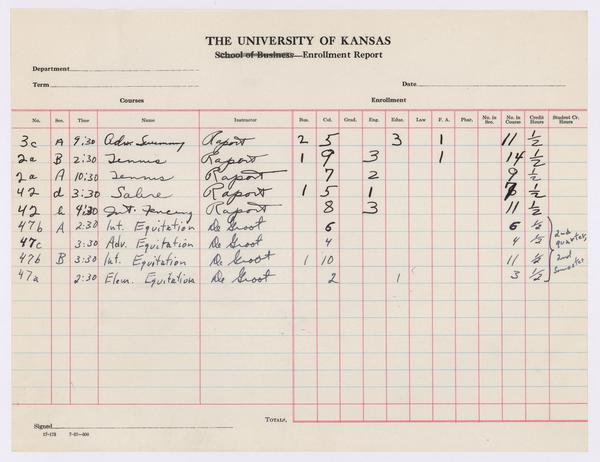 THE UNIVERSITY OF KANSAS
School of Business—Enrollment Report
Department
Term Date
Courses Enrollment
No. Sec. Time Name Instructor Bus. Col. Grad. Eng. Educ. Law F. A. Phar. No. in Sec. No. in Course Credit Hours Student Cr. Hours
3c A 9:30 Adv. Swimming Raport 2 5 3 1 11 1/2
2a B 2:30 Tennis Raport 1 9 3 1 14 1/2
2a A 10:30 Tennis Raport 7 2 9 1/2
42 d 3:30 Sabre Raport 1 5 1 7 1/2
42 b 4:30 Int. Fencing Raport 8 3 11 1/2
47b A 2:30 Int. Equitation De Groot 6 6 1/2 2nd
47c 3:30 Adv. Equitation De Groot 4 4 1/2 quarter,
47b B 3:30 Int. Equitation De Groot 1 10 11 1/2 2nd
47a 2:30 Elem. Equitation De Groot 2 1 3 1/2 Semester
Totals,
Signed
17-173 7-37-800